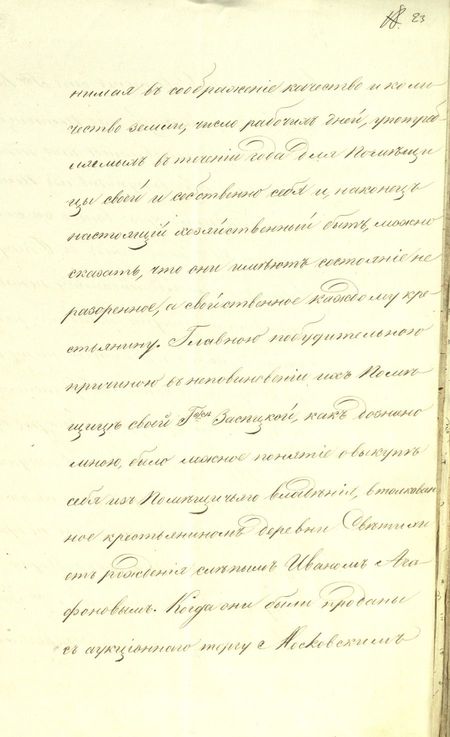 18. 23
нимая въ соображеніе качество и коли
чество земли, число рабочихъ дней, употреб
ляемыхъ въ теченіи года для Помѣщи
цы своей и собственно себя и, наконецъ
настоящій хозяйственной бытъ, можно
сказать, что они имѣютъ состояніе не
разоренное, а свойственное каждому кре
стьянину. Главною побудительною
причиною въ неповиновеніи ихъ Помѣ
щицѣ своей Гжи Засецкой, какъ дознано
мною, было ложное понятіе о выкупѣ
себя изъ Помѣщичьяго владѣнія, втолкован
ное крестьяниномъ деревни
отъ рожденія слѣпымъ Иваномъ Ага
фоновымъ. Когда они были проданы
съ аукціоннаго торгу с Московскимъ